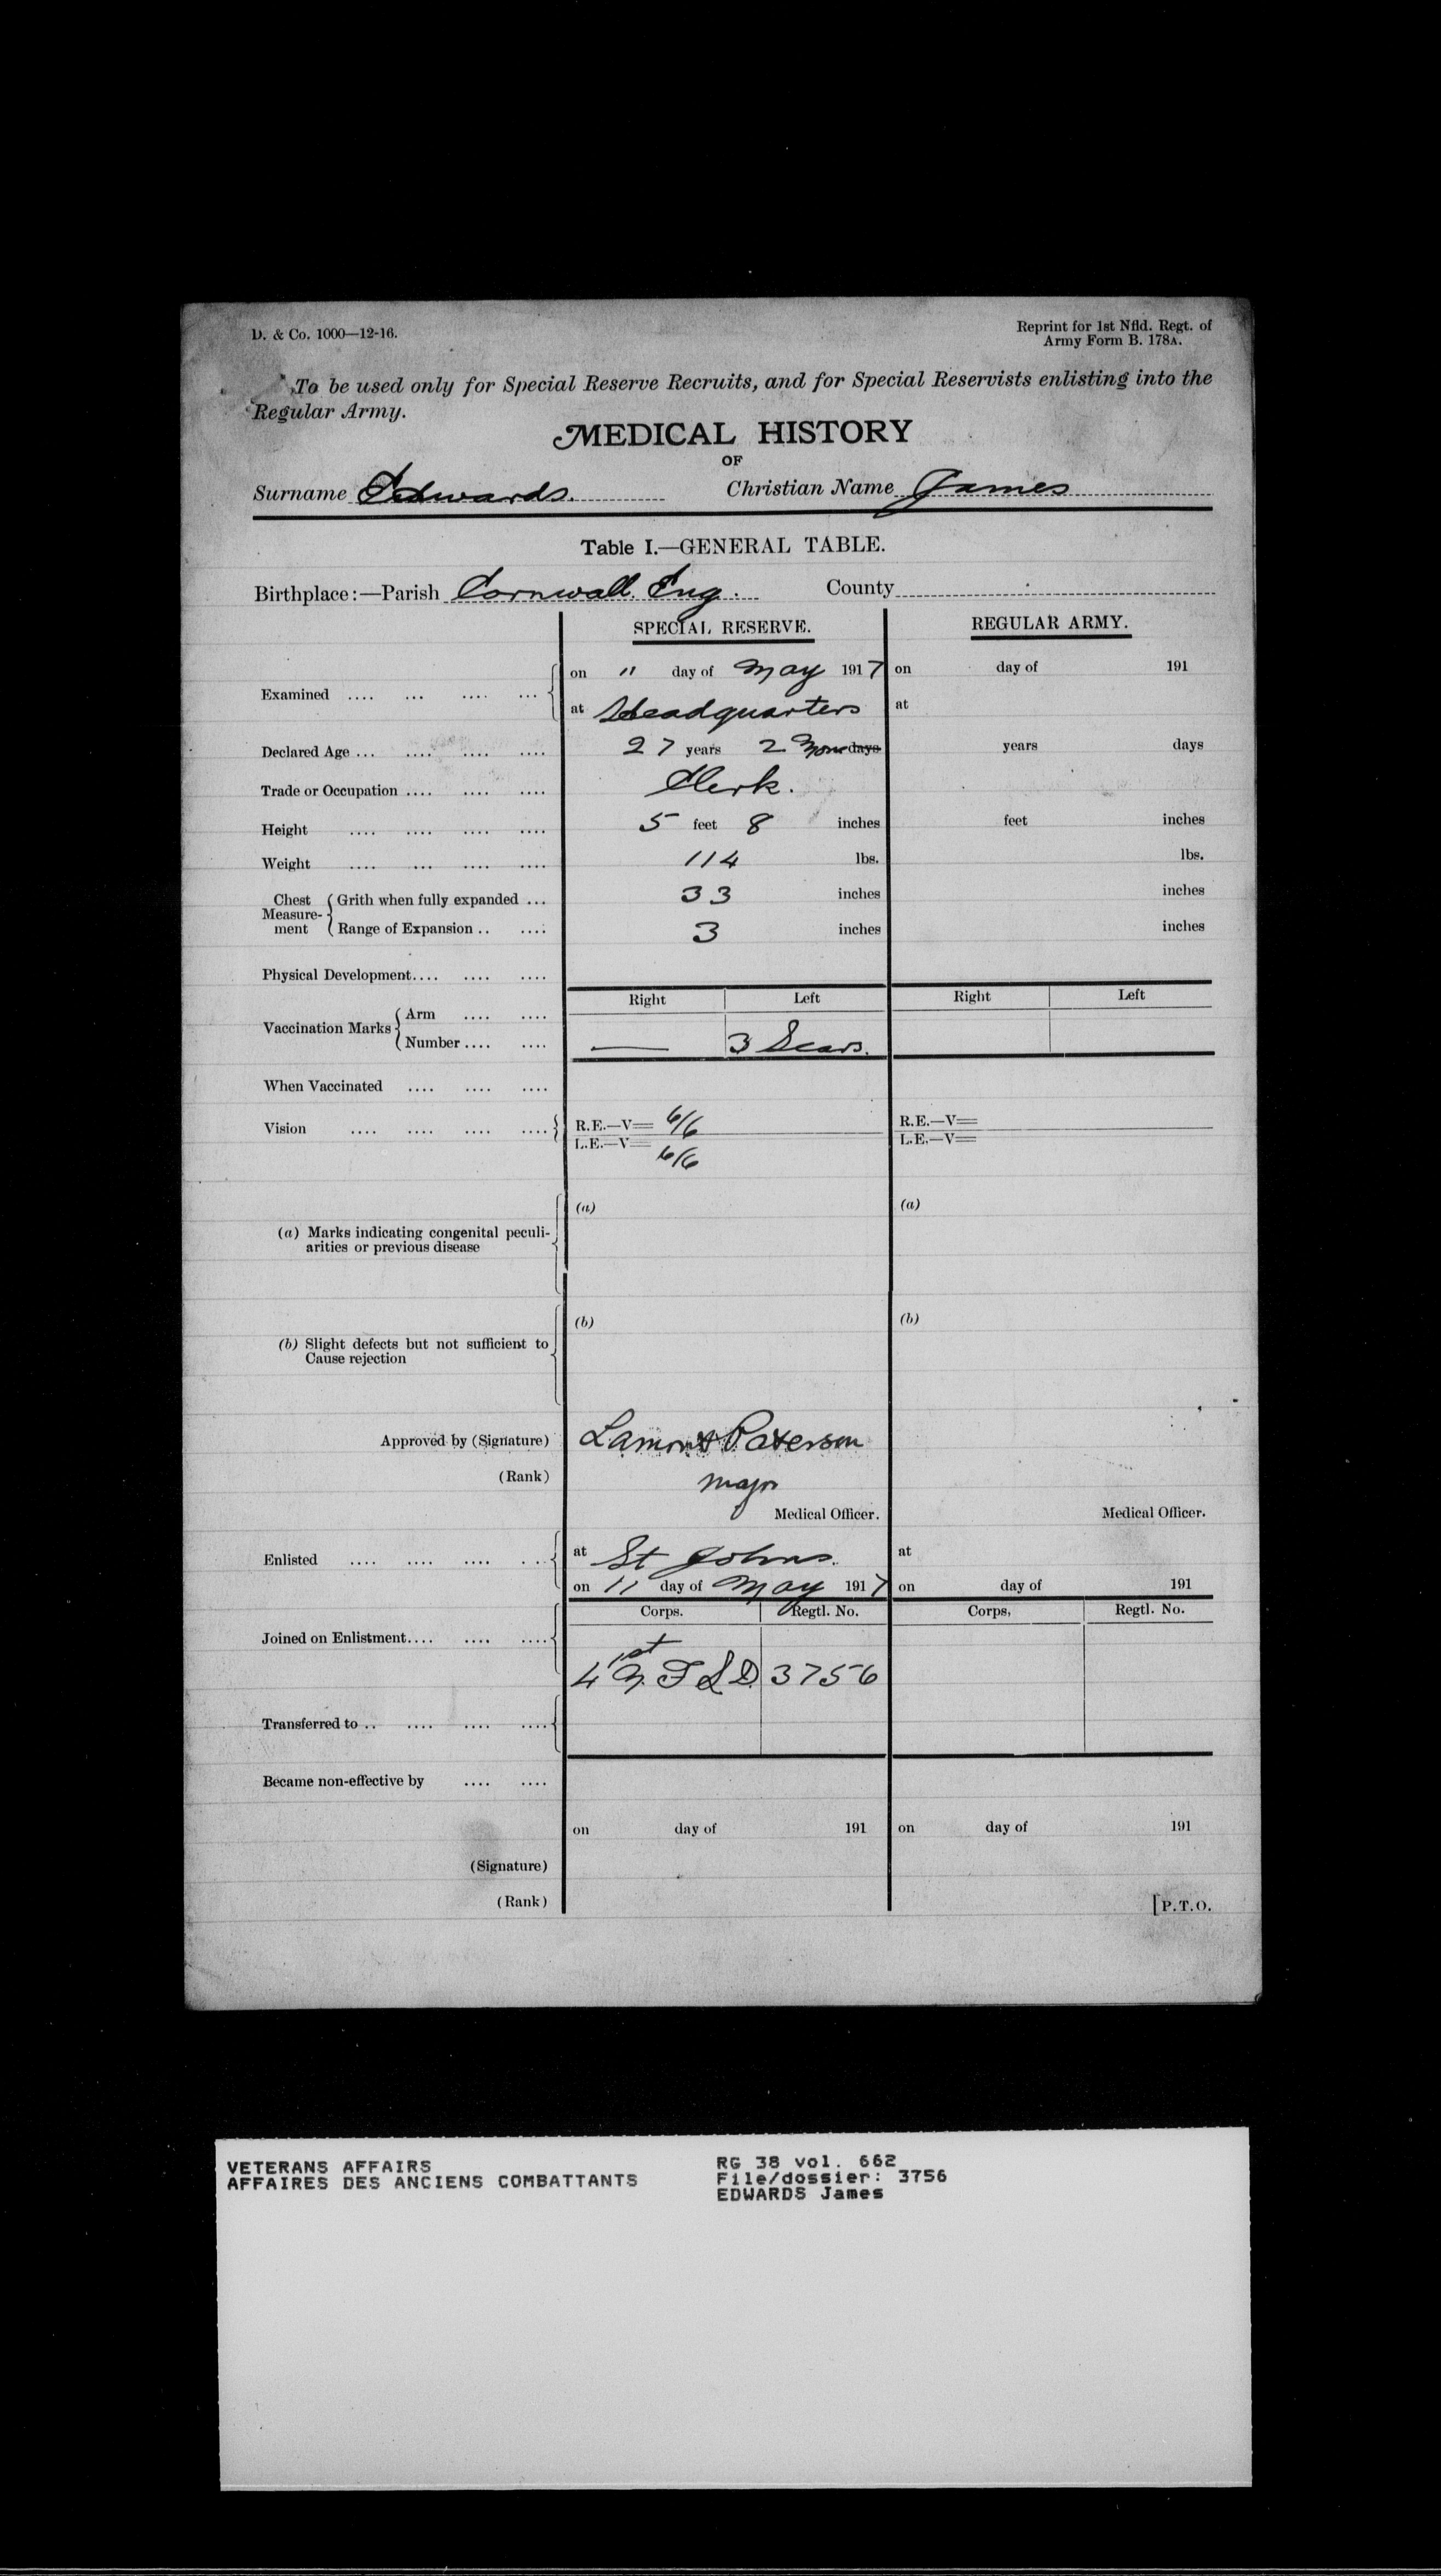 D. & Co. 1000—12-16.
Reprint for 1st Nfld. Regt. of
Army Form B. 178A.
To be used only for Special Reserve Recruits, and for Special Reservists enlisting into the
Regular Army.
MEDICAL HISTORY
OF
Surname Edwards. Christian Name James
Table I.—GENERAL TABLE.
Birthplace:—Parish Cornwall. Eng. County
SPECIAL RESERVE. REGULAR ARMY.
Examined .... ... .... ... on 11 day of May 1917 on day of 191
at Headquarters at
Declared Age ... .... .... .... 27 years 2 Mons days years days
Trade or Occupation .... .... .... Clerk.
Height .... .... .... .... 5 feet 8 inches feet inches
Weight .... ... .... .... 114 lbs. lbs.
Chest Measure-ment Grith when fully expanded ... 33 inches inches
Range of Expansion .. .... 3 inches inches
Physical Development.... .... ....
Right Left Right Left
Vaccination Marks Arm .... ....
Number .... .... — 3 Scars.
When Vaccinated .... .... ....
Vision .... .... .... .... R.E.—V= 6/6 R.E.—V=
L.E.—V= 6/6 L.E.—V=
(a) (a)
(a) Marks indicating congenital peculi-
arities or previous disease
(b) (b)
(b) Slight defects but not sufficient to
Cause rejection
Approved by (Signature) Lamont Paterson
(Rank) Major
Medical Officer. Medical Officer.
Enlisted .... .... .... .. at St Johns. at
on 11 day of May 1917 on day of 191
Corps. Regtl. No. Corps, Regtl. No.
Joined on Enlistment.... .... ....
1st N. F L D 3756
Transferred to .. .... .... ....
Became non-effective by .... ....
on day of 191 on day of 191
(Signature)
(Rank)
[P.T.O.
VETERANS AFFAIRS
AFFAIRES DES ANCIENS COMBATTANTS
RG 38 vol. 662
File/dossier: 3756
EDWARDS James